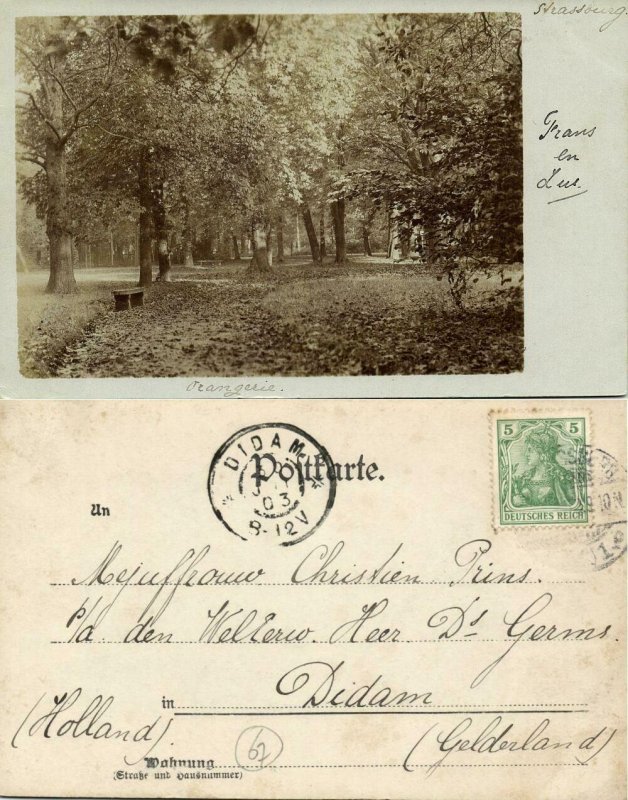 Strassburg.
Frans
en
Lus.
Orangerie.
DIDAM
03
8-12V
Postkarte.
5 5
DEUTSCHES REICH
An
Mejuffrouw Christien Prins.
p/a. den WelEerw. Heer Ds Germs.
in Didam
(Holland) (Gelderland)
67
Wohnung
(Straße und Hausnummer)